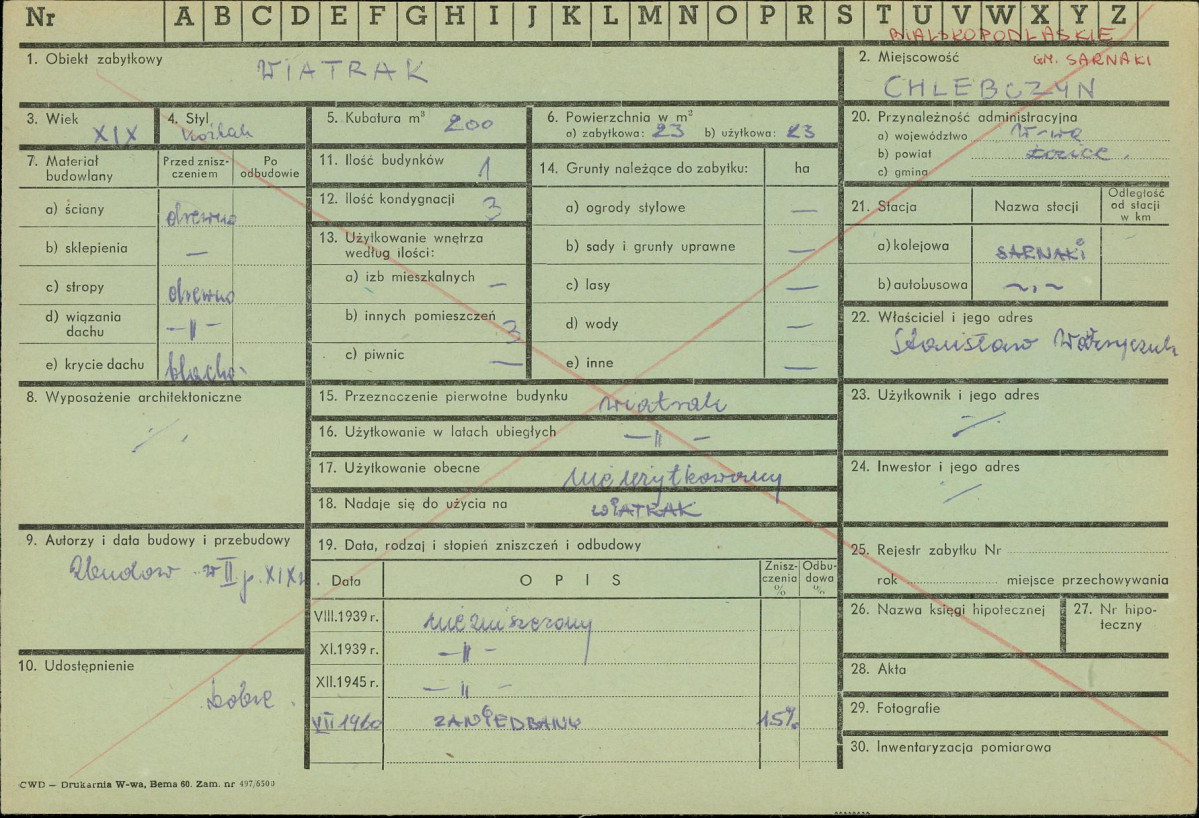 Nr A B C D E F G H I J K L M N O P R S T U V W X Y Z
BIALSKOPODLASKIE
1. Obiekt zabytkowy WIATRAK
2. Miejscowość GM. SARNAKI
CHLEBCZYN
3. Wiek XIX
4. Styl koźlak
5. Kubatura m³ 200
6. Powierzchnia w m²
a) zabytkowa: 23 b) użytkowa: 23
20. Przynależność administracyjna
a) województwo W-wa
b) powiat Łosice.
c) gmina
7. Materiał budowlany
Przed zniszczeniem
Po odbudowie
a) ściany drewno
b) sklepienia —
c) stropy drewno
d) wiązania dachu —„—
e) krycie dachu blacha
11. Ilość budynków 1
12. Ilość kondygnacji 3
13. Użytkowanie wnętrza według ilości:
a) izb mieszkalnych —
b) innych pomieszczeń 3
c) piwnic —
14. Grunty należące do zabytku: ha
a) ogrody stylowe —
b) sady i grunty uprawne —
c) lasy —
d) wody —
e) inne —
21. Stacja
Nazwa stacji
Odległość od stacji w km
a) kolejowa SARNAKI
b) autobusowa ~„~
22. Właściciel i jego adres
Stanisław
8. Wyposażenie architektoniczne
./.
15. Przeznaczenie pierwotne budynku wiatrak
16. Użytkowanie w latach ubiegłych —„—
17. Użytkowanie obecne nie użytkowany
18. Nadaje się do użycia na WIATRAK
23. Użytkownik i jego adres
./.
24. Inwestor i jego adres
./.
9. Autorzy i data budowy i przebudowy
Zbudow w II p. XIX w
19. Data, rodzaj i stopień zniszczeń i odbudowy
Data
OPIS
Zniszczenia %
Odbudowa %
VIII.1939 r. nie zniszczony
XI.1939 r. —„—
XII.1945 r. —„—
VII 1960 ZANIEDBANY 15%
10. Udostępnienie
dobre.
25. Rejestr zabytku Nr
rok miejsce przechowywania
26. Nazwa księgi hipotecznej
27. Nr hipoteczny
28. Akta
29. Fotografie
30. Inwentaryzacja pomiarowa
CWD — Drukarnia W-wa, Bema 60. Zam. nr 497/6500